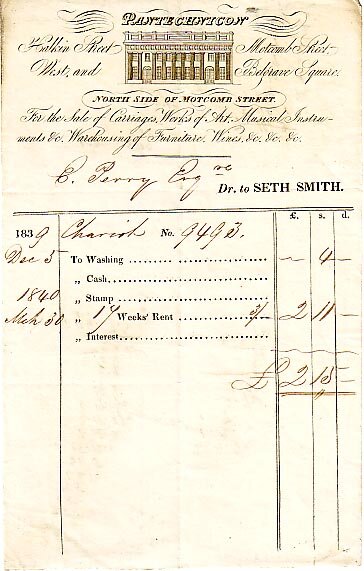 PANTECHNICON
Halkin Street Motcomb Street
West, and Belgrave Square.
NORTH SIDE OF MOTCOMB STREET.
For the Sale of Carriages, Works of Art, Musical Instru-
ments &c. Warehousing of Furniture, Wines, &c. &c. &c.
C. Perry Esqre
Dr. to SETH SMITH.
£. s. d.
1839 Chariot No. 9493.
Dec 3 To Washing ~ 4 —
„ Cash
1840 „ Stamp
Mch 30 „ 17 Weeks' Rent 3/- 2 11 —
„ Interest
£ 2 15 —